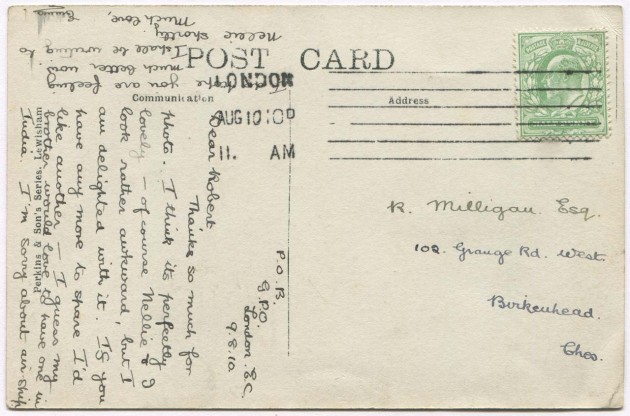 POST CARD
Communication
Address
LONDON
AUG 10
11. AM
R. Milligan. Esq.
102. Grange Rd. West.
Birkenhead.
Ches.
P.O.B.
G.P.O.
London. E.C.
9.8.10
Dear Robert
Thanks so much for
photo. I think its perfectly
lovely — of course Nellie & I
look rather awkward, but I
am delighted with it. If you
have any more to spare I'd
like another — I guess my
brother would love to have one in
India. I'm sorry about air-ship
you are feeling
much better now.
I shall be writing to
Nellie shortly.
Much love,
Perkins & Son's Series, Lewisham